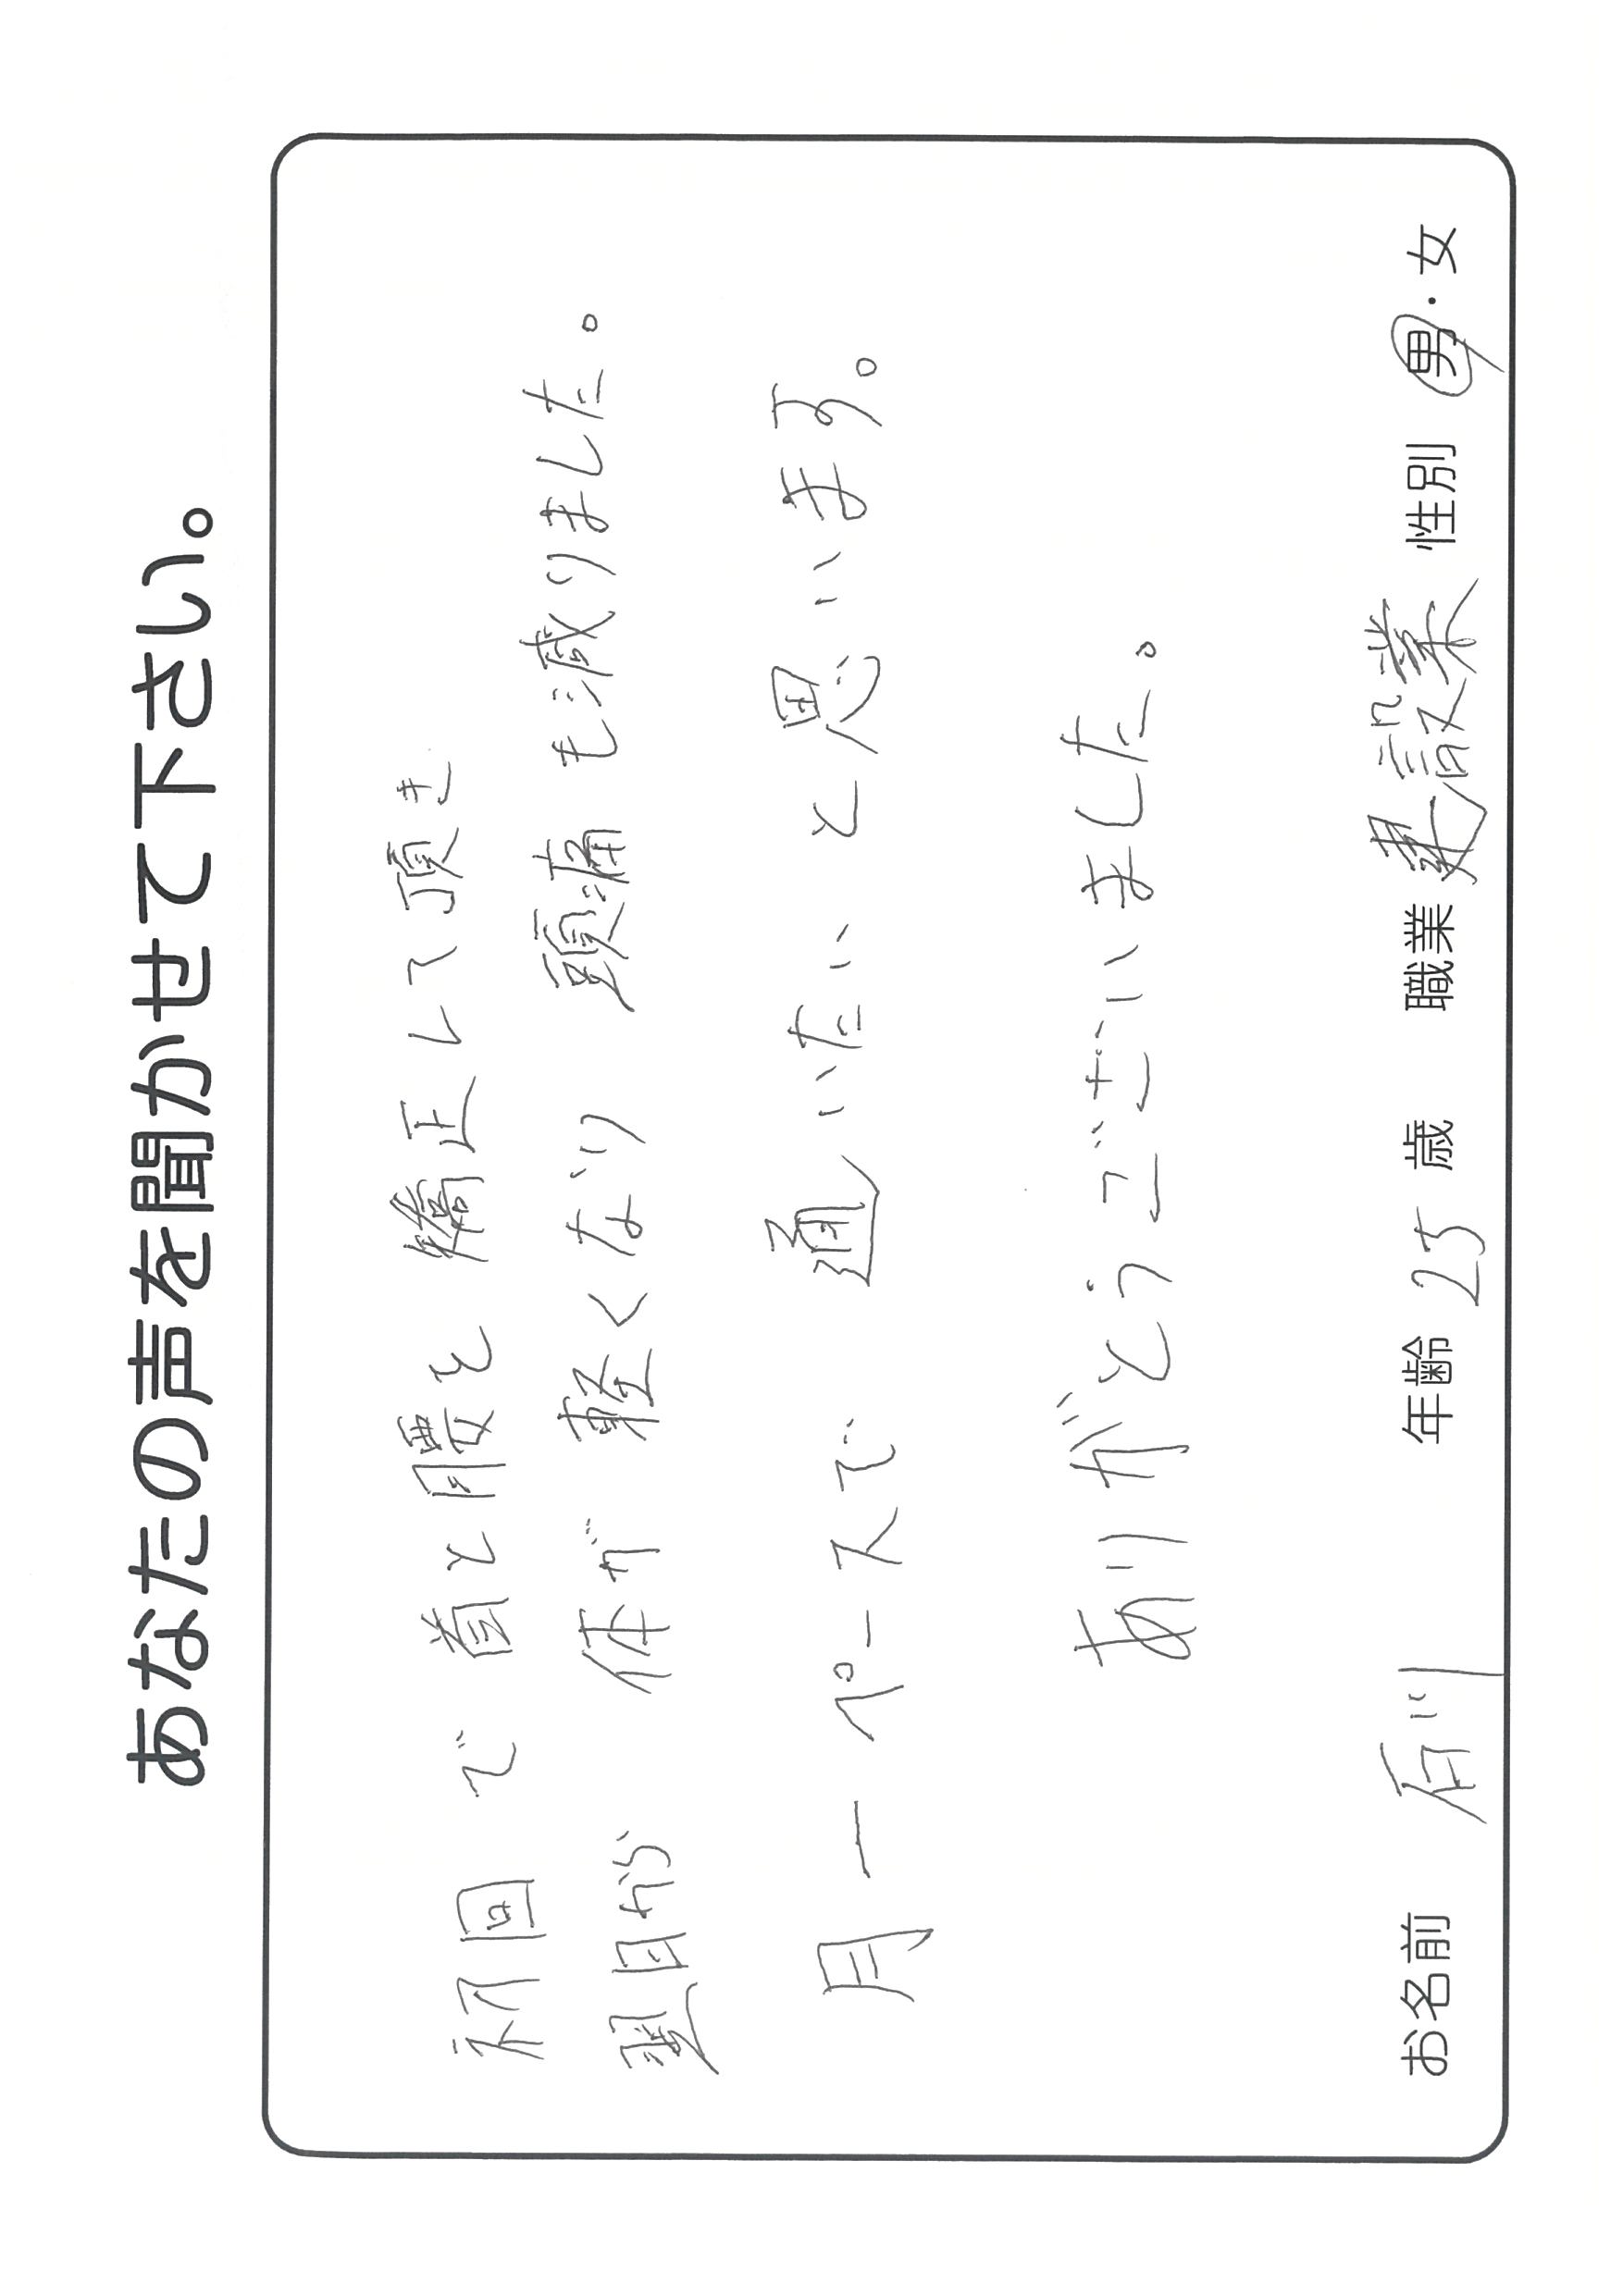 あなたの声を聞かせて下さい。
初回で首と腰を矯正して頂き
翌日から体が軽くなり頭痛も減りました。
月一ペースで通いたいと思います。
ありがとうございました。
お名前 石川 年齢 25 歳 職業 建設業 性別 男・女